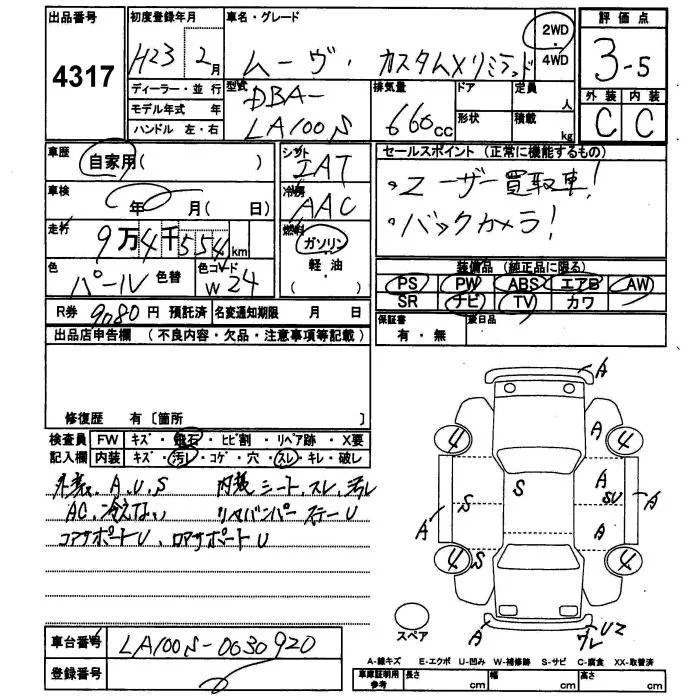 出品番号
4317
初度登録年月
H23 2月
ディーラー・並行
モデル年式 年
ハンドル 左・右
車名・グレード
ムーヴ・カスタムXリミテッド
2WD
・
4WD
型式
DBA-
LA100S
排気量
660cc
ドア
形状
定員
人
積載
kg
評価点
3-5
外装 内装
C C
車歴
自家用( )
車検
年 月( 日)
走行
9万4千554km
色
パール
色替
色コード
W24
シフト
IAT
冷房
AAC
燃料
ガソリン
軽・油
( )
セールスポイント (正常に機能するもの)
・ユーザー買取車!
・バックカメラ!
装備品 (純正品に限る)
PS PW ABS エアB AW
SR ナビ TV カワ
保証書
有・無
後日品
R券 9080円 預託済 名変通知期限 月 日
出品店申告欄 (不良内容・欠品・注意事項等記載)
修復歴 有〔箇所
検査員 FW キズ・飛石・ヒビ割・リペア跡・X要
記入欄 内装 キズ・汚レ・コゲ・穴・スレ・キレ・破レ
外装、A、U、S 内装シート、スレ、汚レ
AC、冷えない リヤバンパーステーU
コアサポートU、ロアサポートU
A
4 A 4
A
S SU
A S A A
4 S 4
スペア
A UZ
ワレ
A-線キズ E-エクボ U-凹み W-補修跡 S-サビ C-腐食 XX-取替済
車台番号
LA100S-0030920
登録番号
車庫証明用
参考
長さ cm 幅 cm 高さ cm